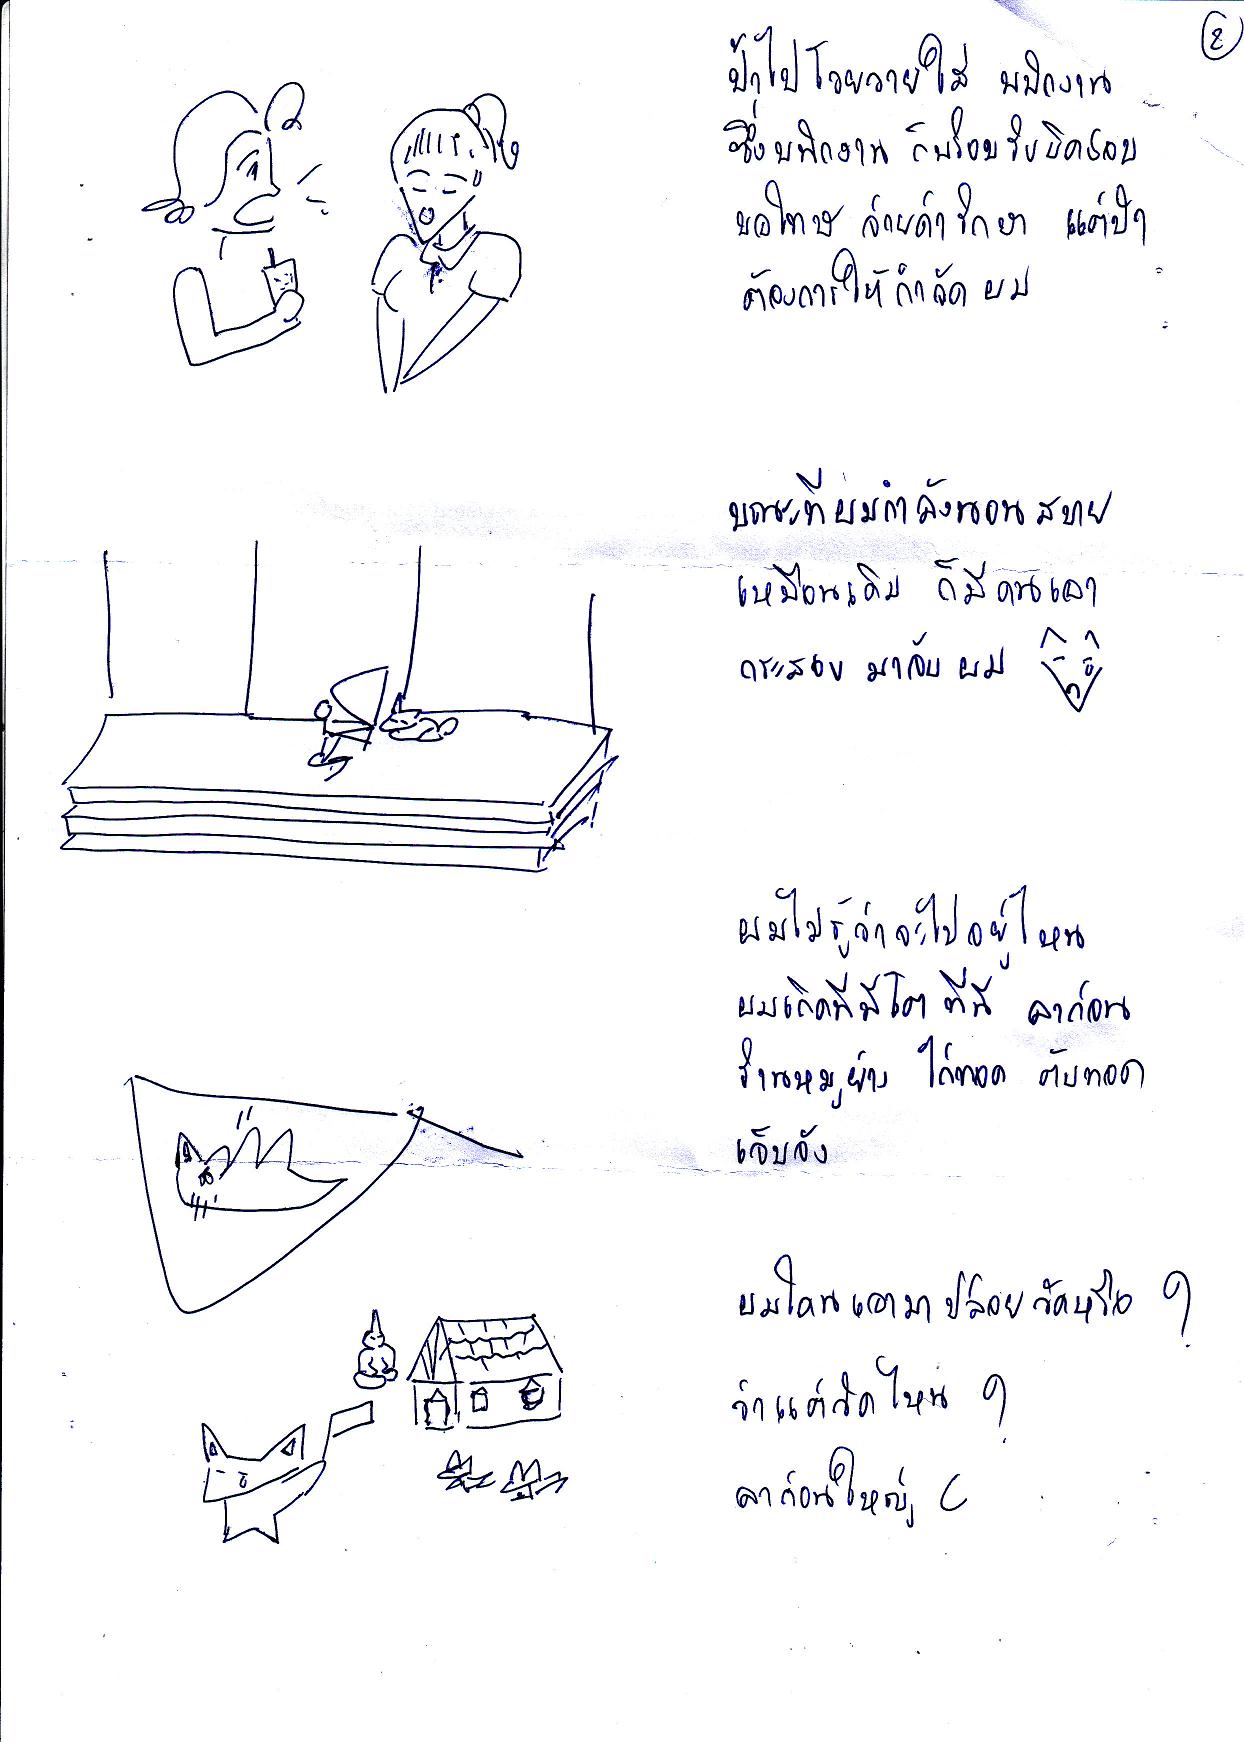 2
ป้าไปโวยวายใส่ พนักงาน
ซึ่งพนักงาน ก็พร้อมรับผิดชอบ
ขอโทษ จ่ายค่ารักษา แต่ป้า
ต้องการให้ กำจัด ผม
ขณะที่ ผมกำลังนอน สบาย
เหมือนเดิม ก็มี คนเอา
กระสอบ มาจับ ผม
ผมไม่รู้ว่า จะไป อยู่ไหน
ผมเกิดที่นี่ โต ที่นี่ ลาก่อน
ร้านหมูย่าง ไก่ทอด ตับทอด
เจ็บจัง
ผมโดน เอามา ปล่อย วัดหรือ ?
ว่าแต่วัด ไหน ?
ลาก่อนใหญ่ (